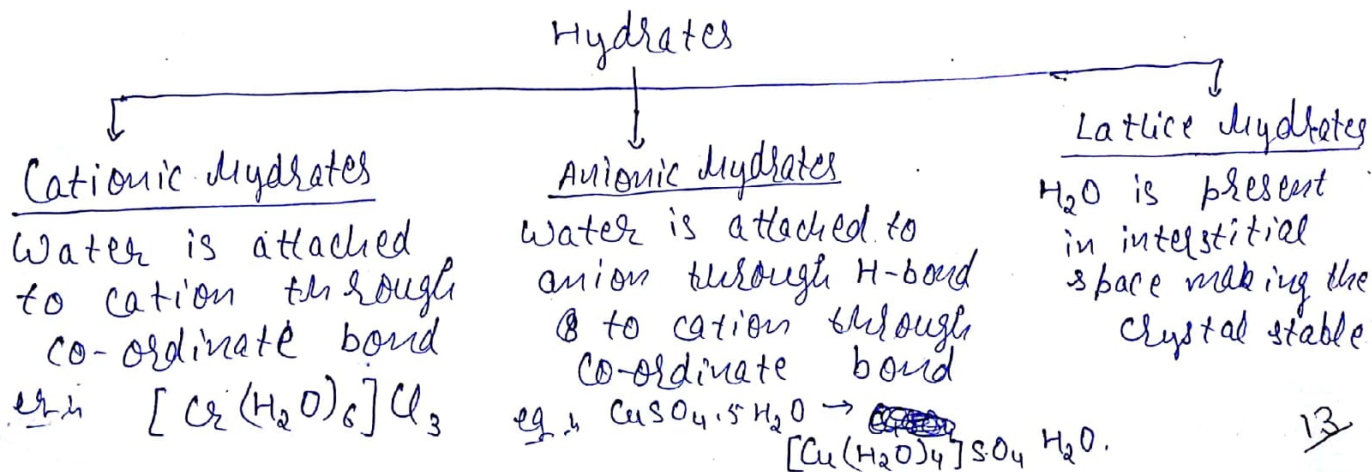 Hydrates
Cationic Hydrates
Water is attached
to cation through
co-ordinate bond
eg :- [Cr(H₂O)₆]Cl₃
Anionic Hydrates
Water is attached to
anion through H-bond
& to cation through
co-ordinate bond
eg :- CuSO₄.5H₂O →
[Cu(H₂O)₄]SO₄ H₂O.
Lattice Hydrates
H₂O is present
in interstitial
space making the
crystal stable
13